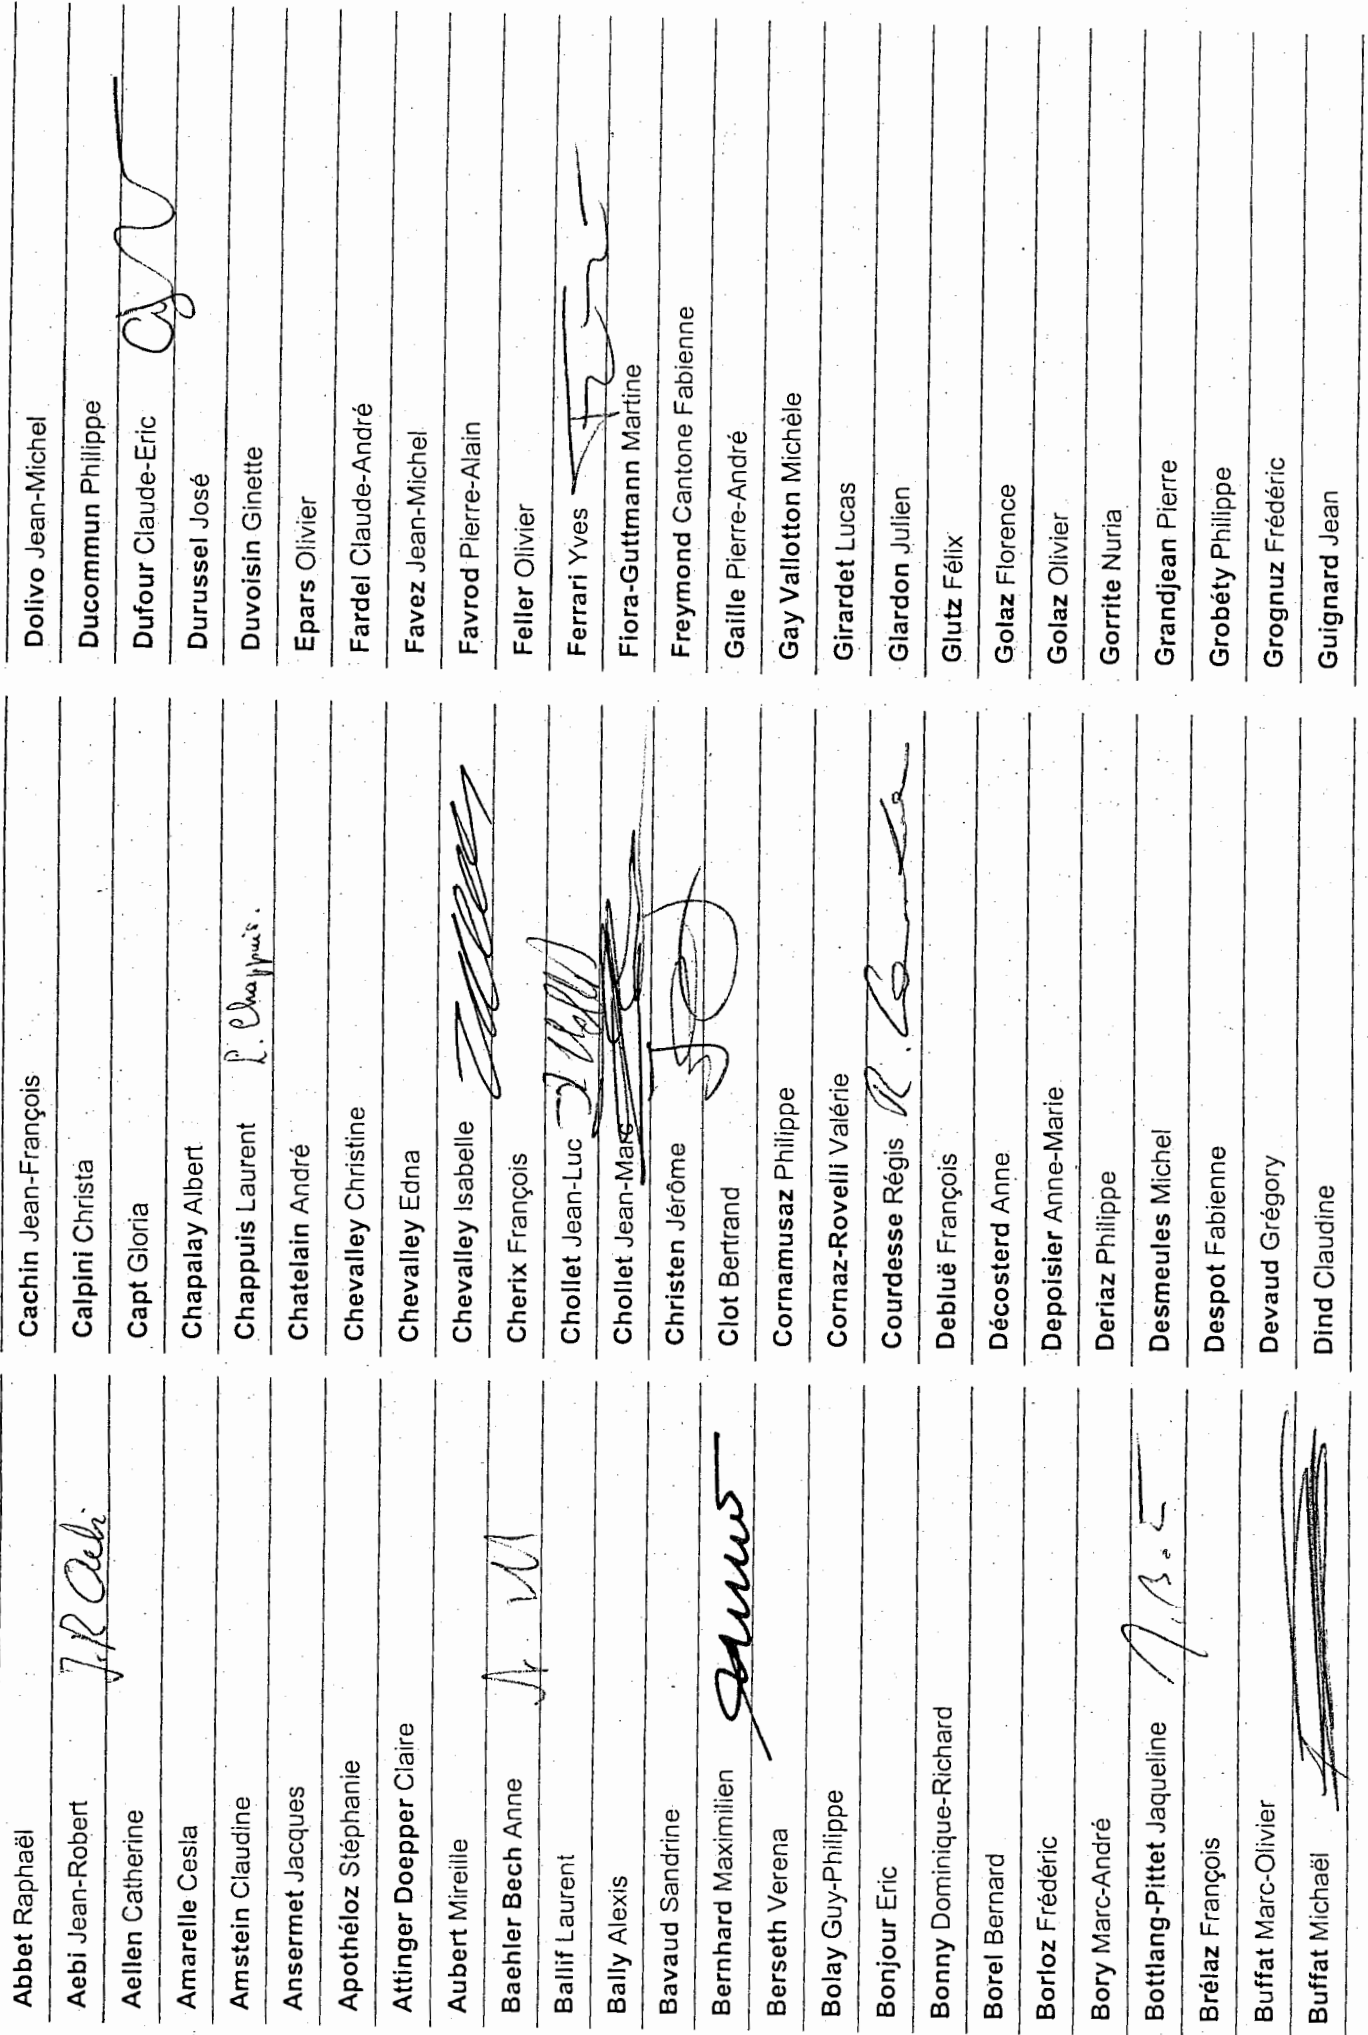 Abbet Raphaël
Aebi Jean-Robert J.R Aebi
Aellen Catherine
Amarelle Cesla
Amstein Claudine
Ansermet Jacques
Apothéloz Stéphanie
Attinger Doepper Claire
Aubert Mireille
Baehler Bech Anne
Ballif Laurent
Bally Alexis
Bavaud Sandrine
Bernhard Maximilien
Berseth Verena
Bolay Guy-Philippe
Bonjour Eric
Bonny Dominique-Richard
Borel Bernard
Borloz Frédéric
Bory Marc-André
Bottlang-Pittet Jaqueline
Brélaz François
Buffat Marc-Olivier
Buffat Michaël
Cachin Jean-François
Calpini Christa
Capt Gloria
Chapalay Albert
Chappuis Laurent L. Chappuis.
Chatelain André
Chevalley Christine
Chevalley Edna
Chevalley Isabelle
Cherix François
Chollet Jean-Luc
Chollet Jean-Marc
Christen Jérôme
Clot Bertrand
Cornamusaz Philippe
Cornaz-Rovelli Valérie
Courdesse Régis
Debluë François
Décosterd Anne
Depoisier Anne-Marie
Deriaz Philippe
Desmeules Michel
Despot Fabienne
Devaud Grégory
Dind Claudine
Dolivo Jean-Michel
Ducommun Philippe
Dufour Claude-Eric
Durussel José
Duvoisin Ginette
Epars Olivier
Fardel Claude-André
Favez Jean-Michel
Favrod Pierre-Alain
Feller Olivier
Ferrari Yves
Fiora-Guttmann Martine
Freymond Cantone Fabienne
Gaille Pierre-André
Gay Vallotton Michèle
Girardet Lucas
Glardon Julien
Glutz Félix
Golaz Florence
Golaz Olivier
Gorrite Nuria
Grandjean Pierre
Grobéty Philippe
Grognuz Frédéric
Guignard Jean